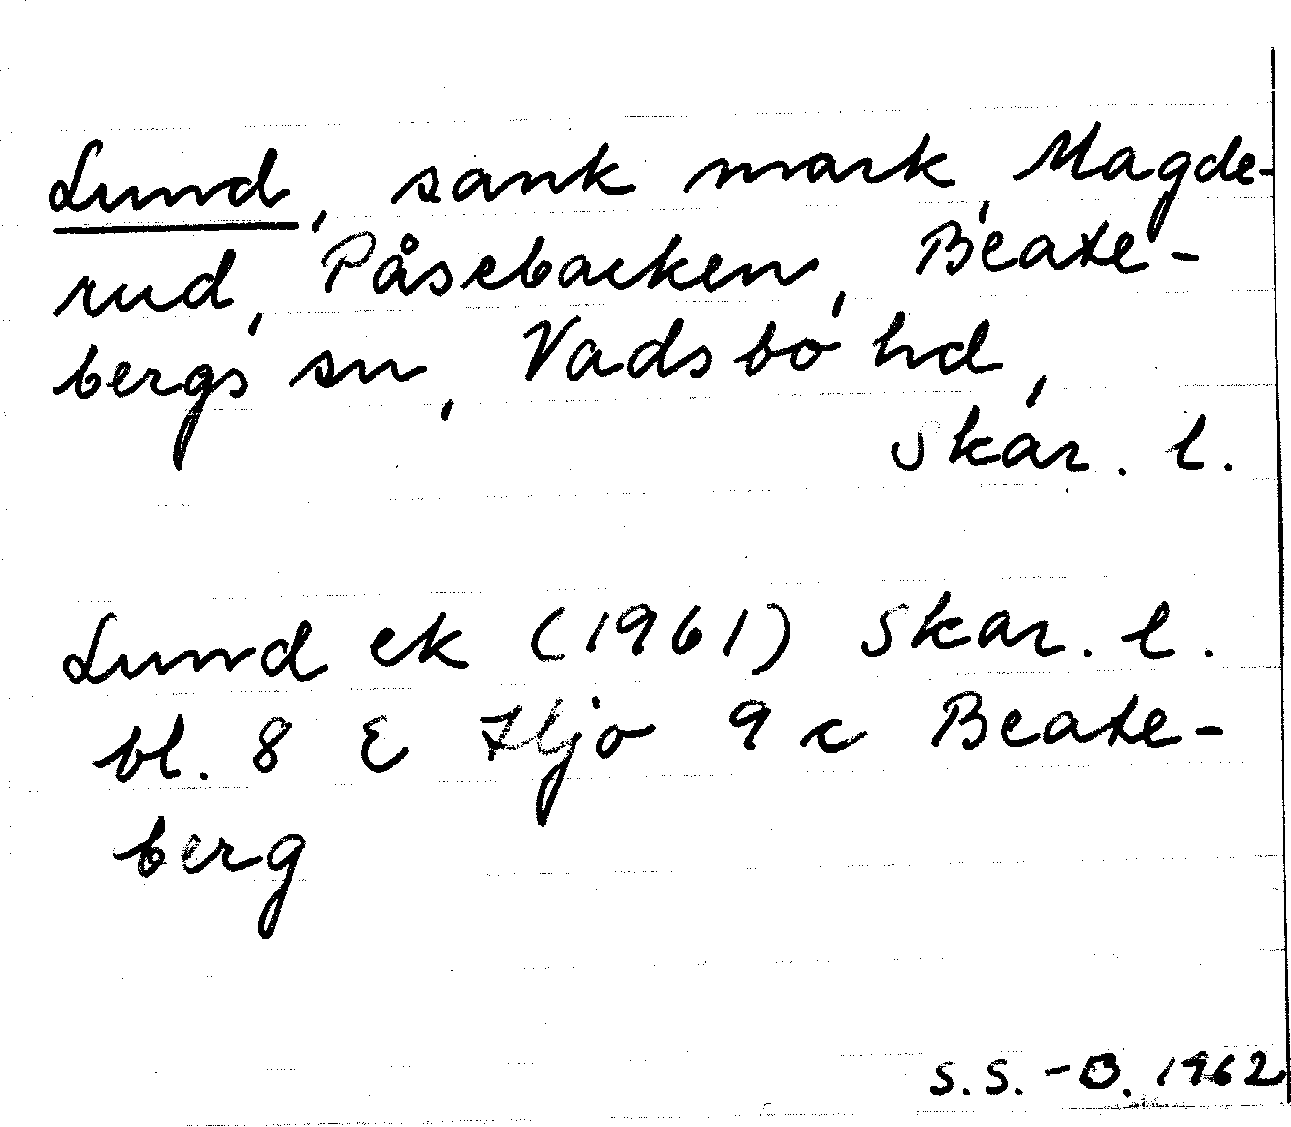 Lund, sank mark, Magde-
rud, Påsebacken, Beate-
bergs sn, Vadsbo hd,
Skar. l.
Lund ek (1961) Skar. l.
bl. 8 E Hjo 9 c Beate-
berg
S.S.-B. 1962